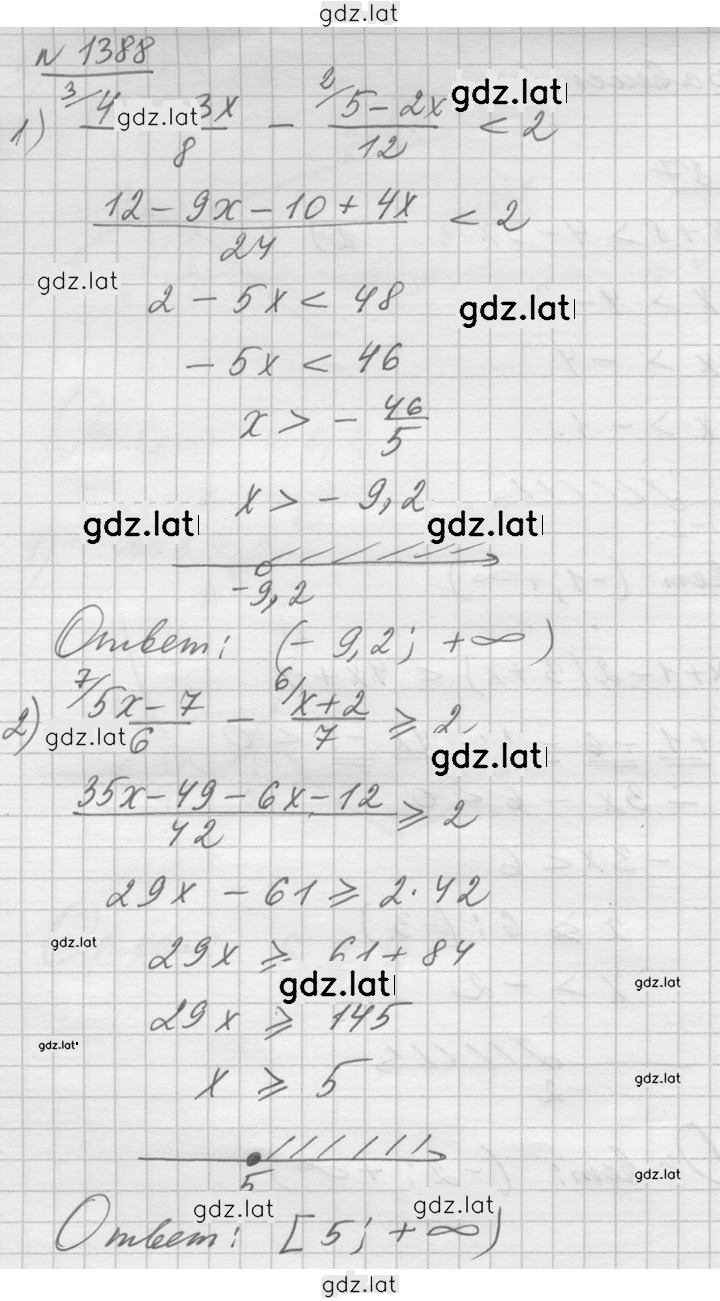 gdz.lat
№ 1388
1) ³/4 3x/8 - ²/(5-2x)/12 < 2
gdz.lat
gdz.lat
(12-9x-10+4x)/24 < 2
gdz.lat
2-5x < 48
gdz.lat
-5x < 46
x > -46/5
x > -9,2
gdz.lat
gdz.lat
-9,2
Ответ: (-9,2; +∞)
2) ⁷/(5x-7)/6 - ⁶/(x+2)/7 ⩾ 2
gdz.lat
gdz.lat
(35x-49-6x-12)/42 ⩾ 2
29x-61 ⩾ 2·42
29x ⩾ 61+84
gdz.lat
gdz.lat
gdz.lat
29x ⩾ 145
gdz.lat
x ⩾ 5
gdz.lat
5
gdz.lat
gdz.lat
gdz.lat
Ответ: [5; +∞)
gdz.lat